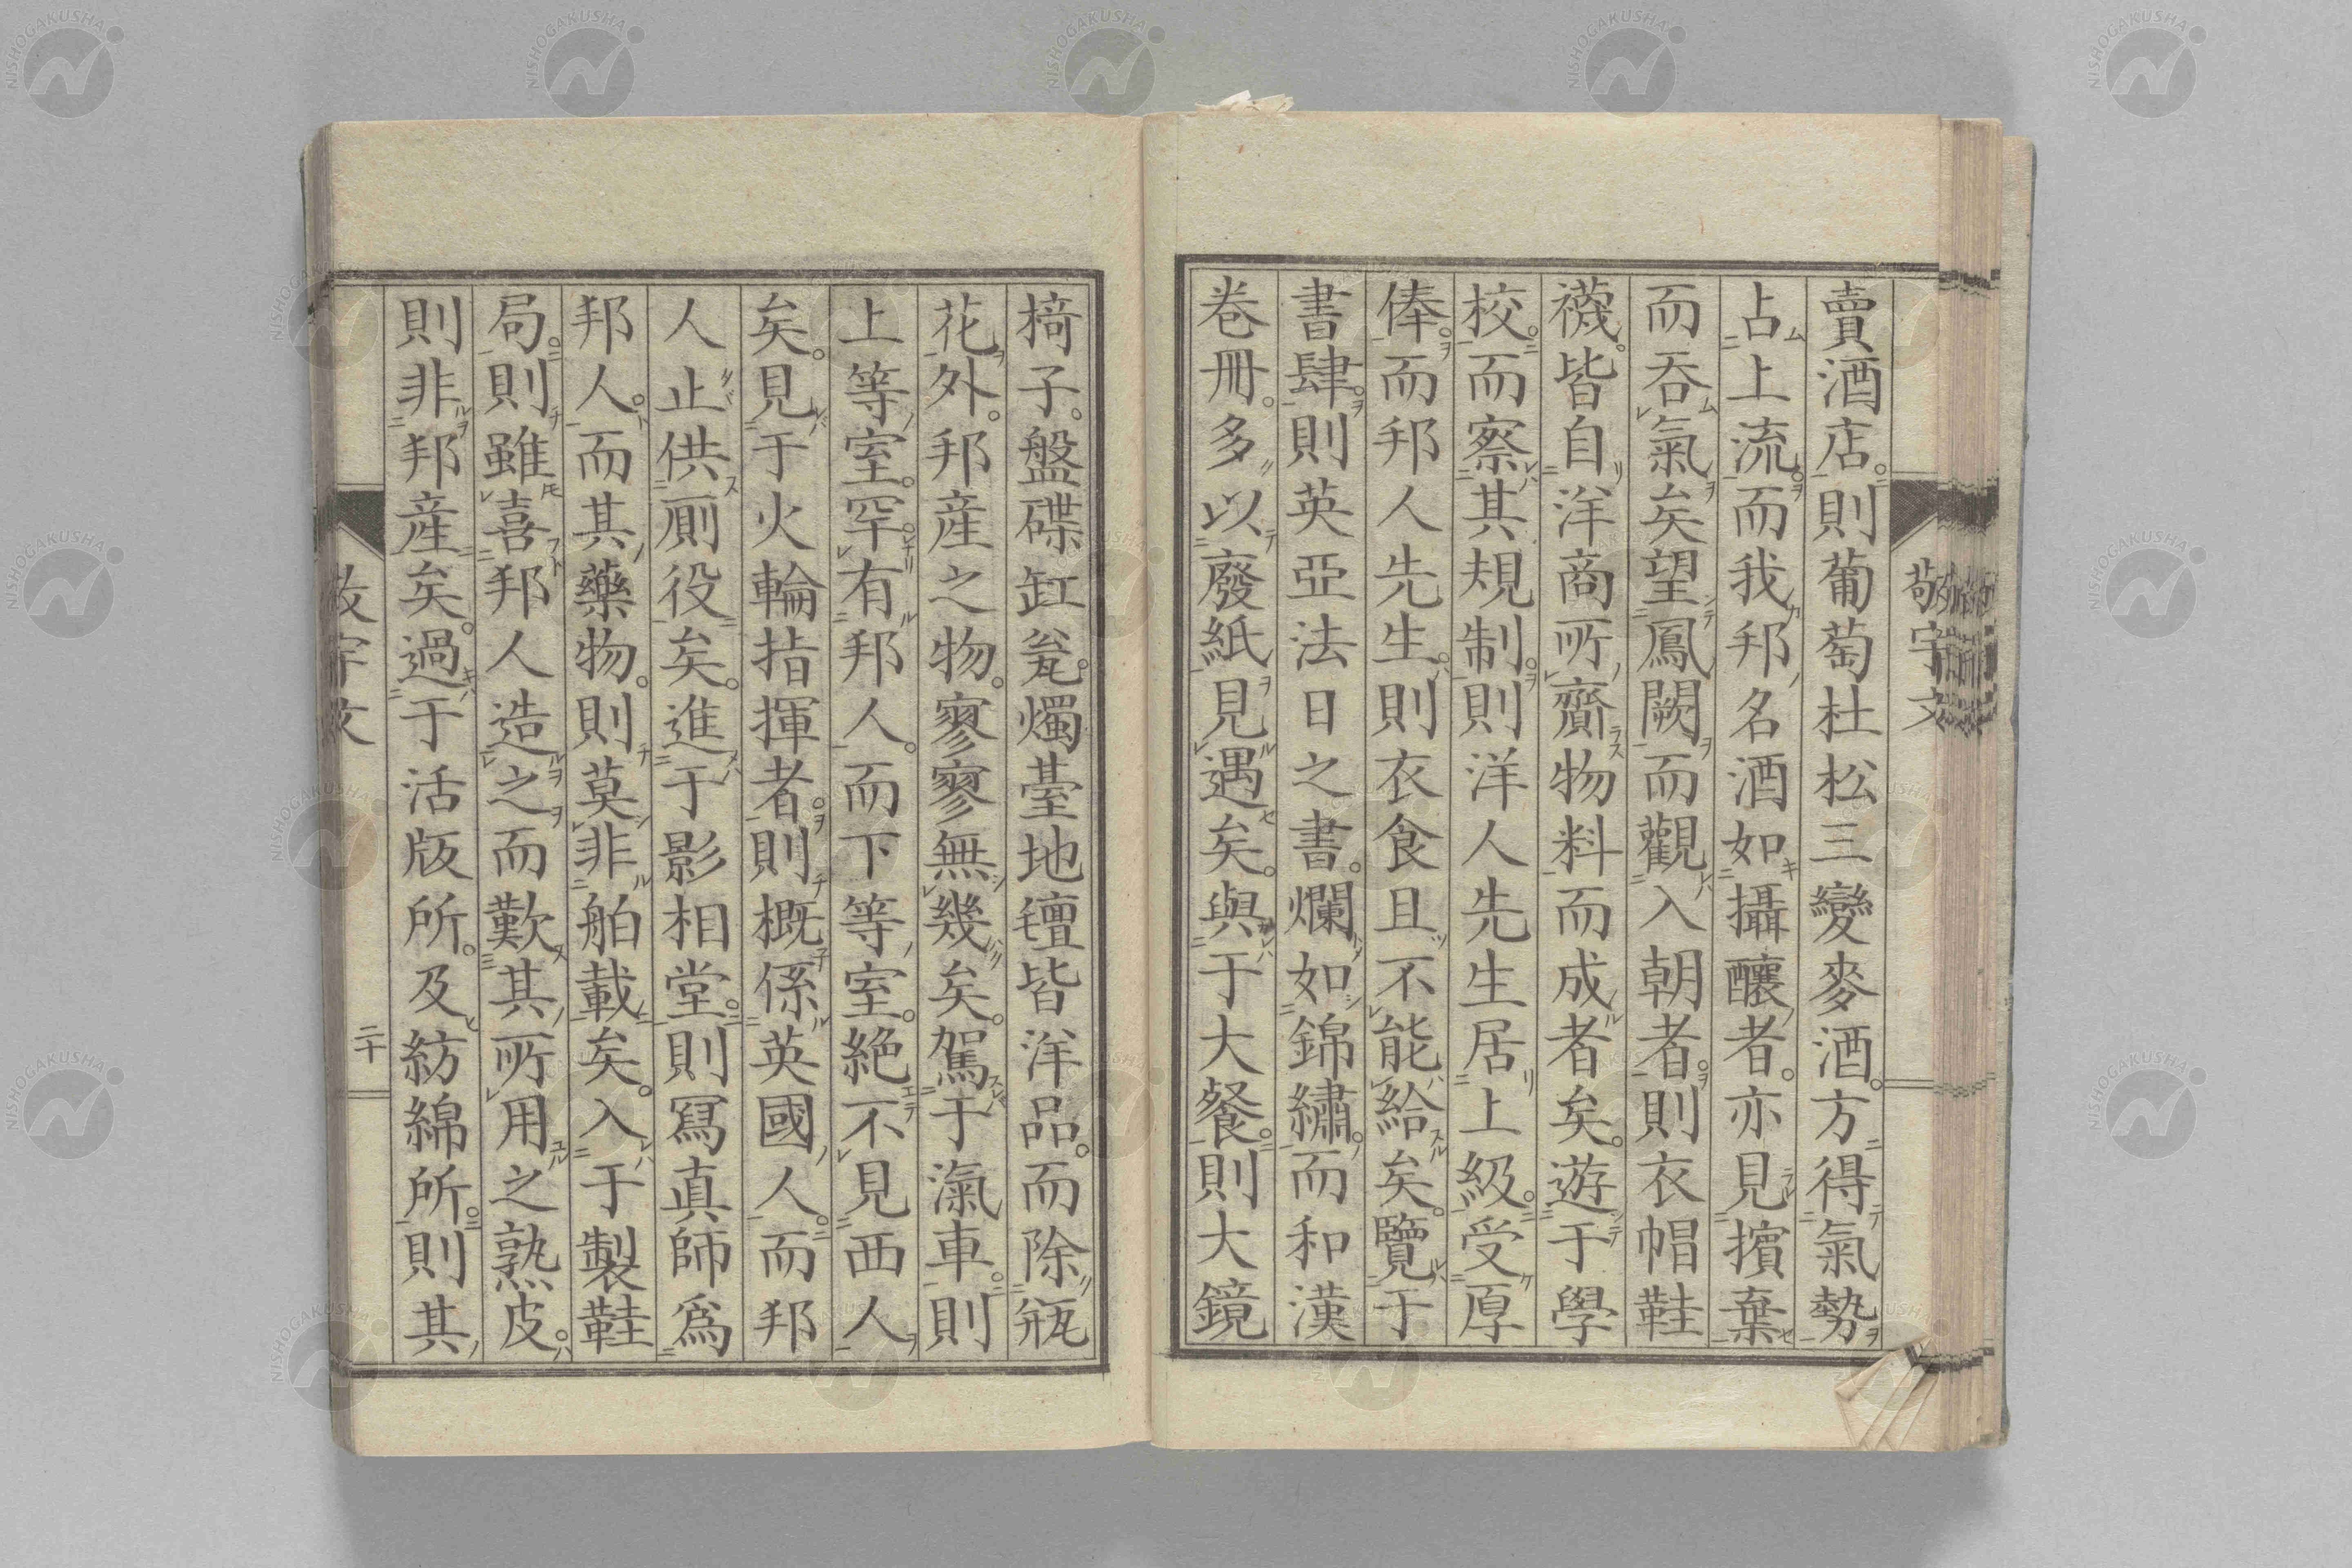 賣酒店。則葡萄杜松三變麥酒。方得氣勢
占上流。而我邦名酒如攝釀者。亦見擯棄
而吞氣矣望鳳闕而觀入朝者。則衣帽鞋
襪。皆自洋商所齎物料而成者矣。遊于學
校。而察其規制。則洋人先生居上級。受厚
俸。而邦人先生。則衣食且不能給矣。覽于
書肆。則英亞法日之書。爛如錦繡。而和漢
巻冊。多以廢紙見遇矣。與于大餐。則大鏡
椅子。盤碟缸瓮。燭臺地氈皆洋品。而除瓶
花外。邦産之物。寥寥無幾矣。駕于滊車。則
上等室。罕有邦人。而下等室。絶不見西人
矣。見于火輪指揮者。則概係英國人。而邦
人止供厠役矣。進于影相堂。則冩真師爲
邦人。而其藥物。則莫非舶載矣。入于製鞋
局。則雖喜邦人造之而歎其所用之熟皮。
則非邦産矣。過于活版所。及紡綿所。則其
敬宇文
敬宇文
二十
NISHOGAKUSHA